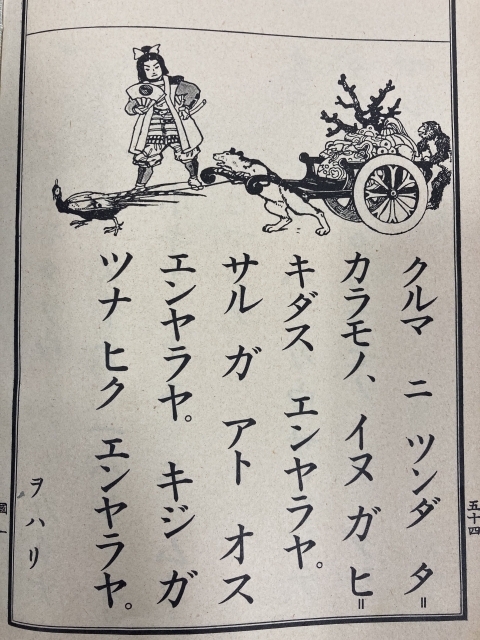 クルマ ニ ツンダ タ〓
カラモノ、イヌ ガ ヒ〓
キダス エンヤラヤ。
サル ガ アト オス
エンヤラヤ。 キジ ガ
ツナ ヒク エンヤラヤ。
ヲハリ
五十四